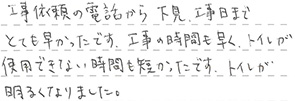 工事依頼の電話から下見、工事日まで
とても早かったです。工事の時間も早く、トイレが
使用できない時間も短かったです。トイレが
明るくなりました。